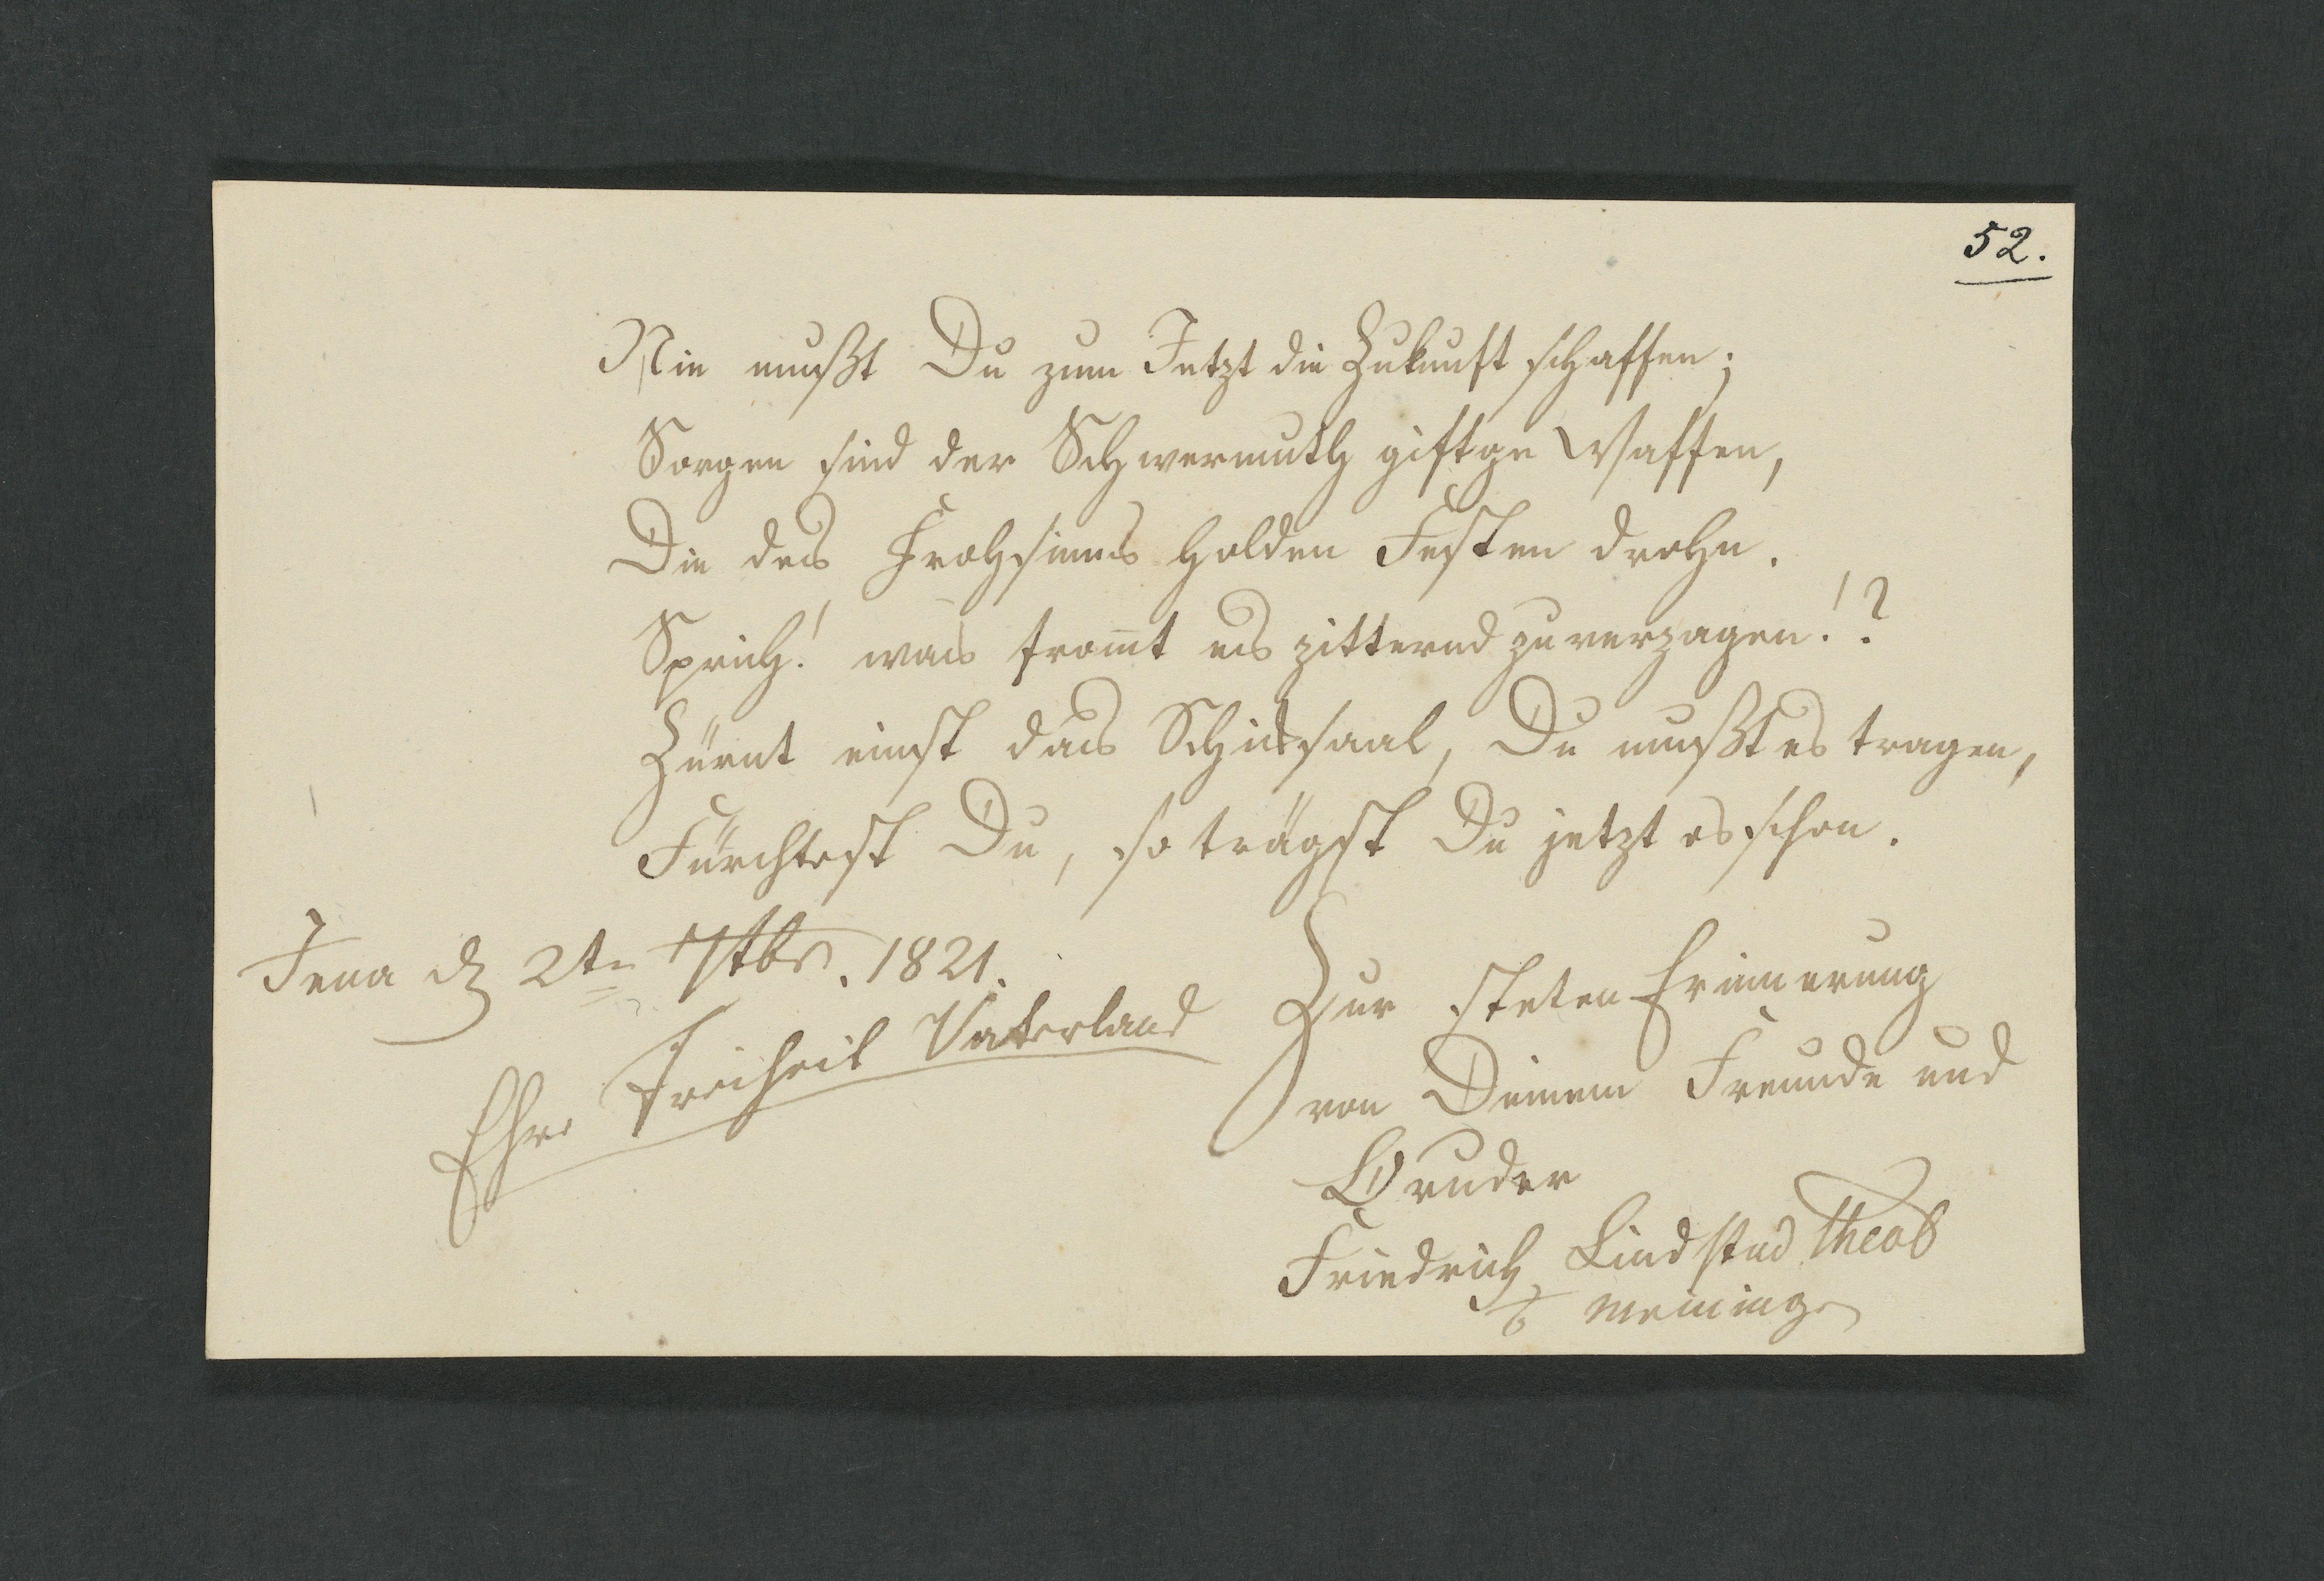 52.
Nie mußt Du zum Jetzt die Zukunft schaffen;
Sorgen sind der Schwermuth giftge Waffen,
Die des Frohsinns holden Festen drohn.
Sprich! was from̅t es zitternd zu verzagen!?
Zürnt einst das Schicksaal, Du mußt es tragen,
Fürchtest Du, so trägst Du jetzt es schon.
Jena d 2tn 7tbr. 1821.
Ehre Freiheit Vaterland
Zur steten Erinnerung
von Deinem Freunde und
Bruder
Friedrich Lind stud Theol
Meiningen